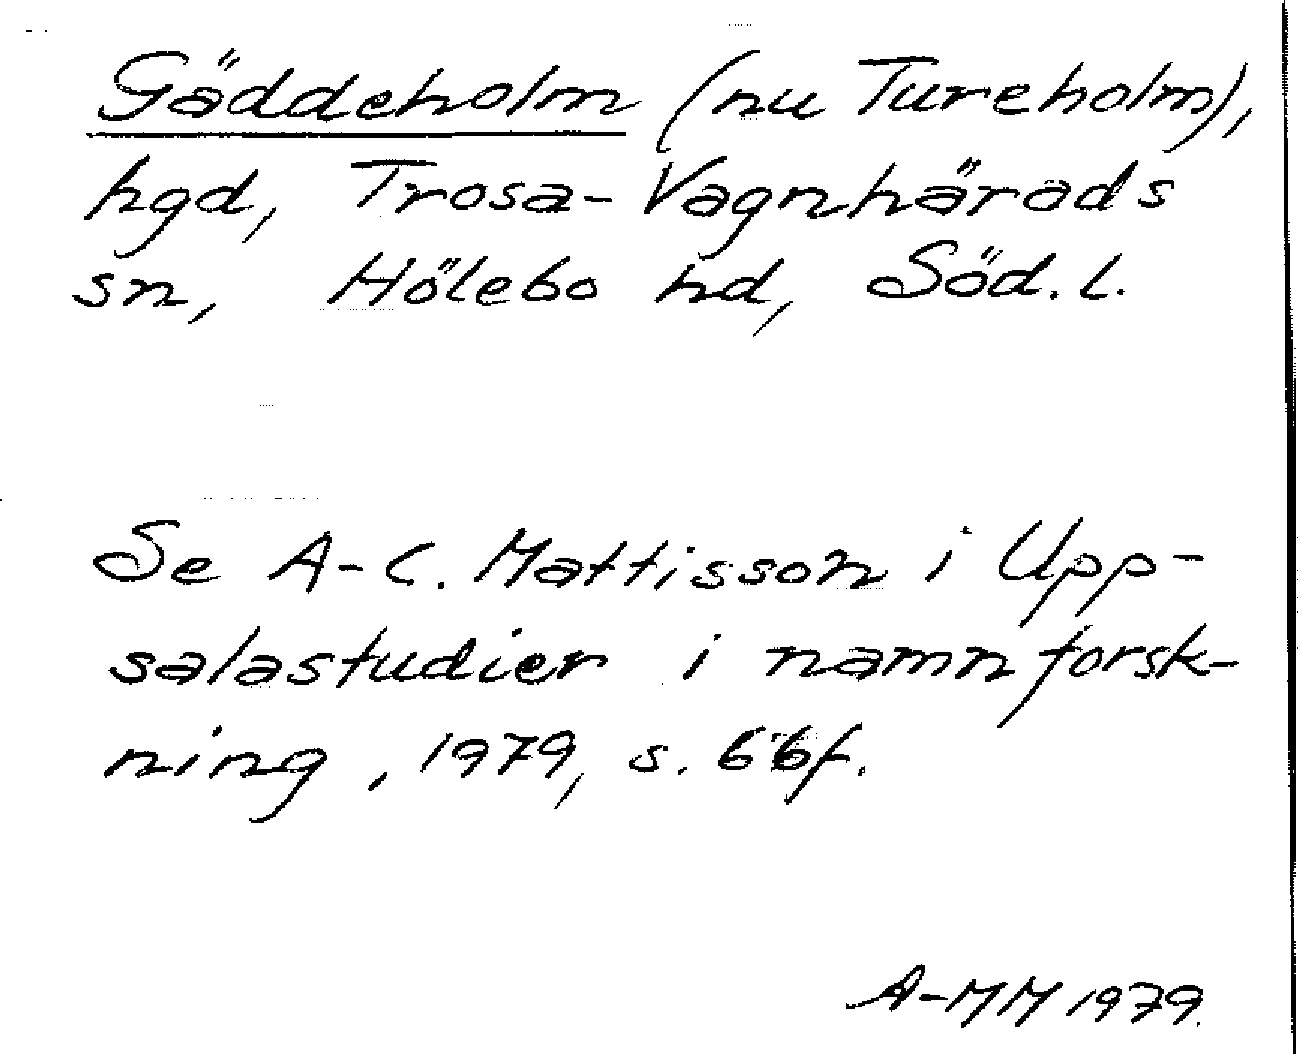 Gäddeholm (nu Tureholm),
hgd, Trosa-Vagnhärads
sn, Hölebo hd, Söd. l.
Se A-C. Mattisson i Upp-
salastudier i namnforsk-
ning, 1979, s. 66f.
A-MM 1979.